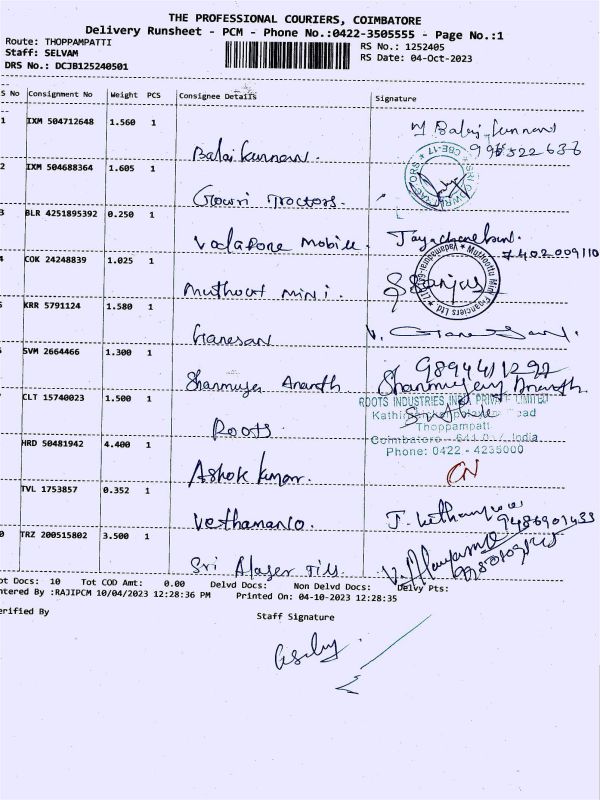 THE PROFESSIONAL COURIERS, COIMBATORE
Delivery Runsheet - PCM - Phone No.:0422-3505555 - Page No.:1
Route: THOPPAMPATTI
RS No.: 1252405
Staff: SELVAM
RS Date: 04-Oct-2023
DRS No.: DCJB125240501
S No Consignment No Weight PCS Consignee Details Signature
1 IXM 504712648 1.560 1
Balaji Kannan.
2 IXM 504688364 1.605 1
Gowri Tractors.
3 BLR 4251895392 0.250 1
Vodafone Mobile.
7402009110
4 COK 24248839 1.025 1
Muthoot Mini.
Sanjus
5 KRR 5791124 1.580 1
Ganesan
SVM 2664466 1.300 1
9894411292
Shanmuga Ananth
CLT 15740023 1.500 1
ROOTS INDUSTRIES INDIA PRIVATE LIMITED
Thoppampatti
Roots
Coimbatore India
HRD 50481942 4.400 1
Phone: 0422 - 4235000
Ashok kumar.
TVL 1753857 0.352 1
9486901433
TRZ 200515802 3.500 1
ot Docs: 10 Tot COD Amt: 0.00 Delvd Docs: Non Delvd Docs: Delvy Pts:
ntered By :RAJIPCM 10/04/2023 12:28:36 PM Printed On: 04-10-2023 12:28:35
erified By
Staff Signature